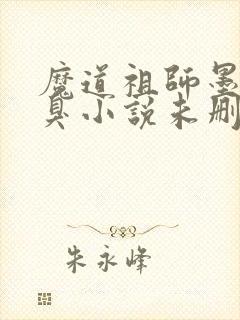 魔道祖師墨
臭小説未刪
朱永峰